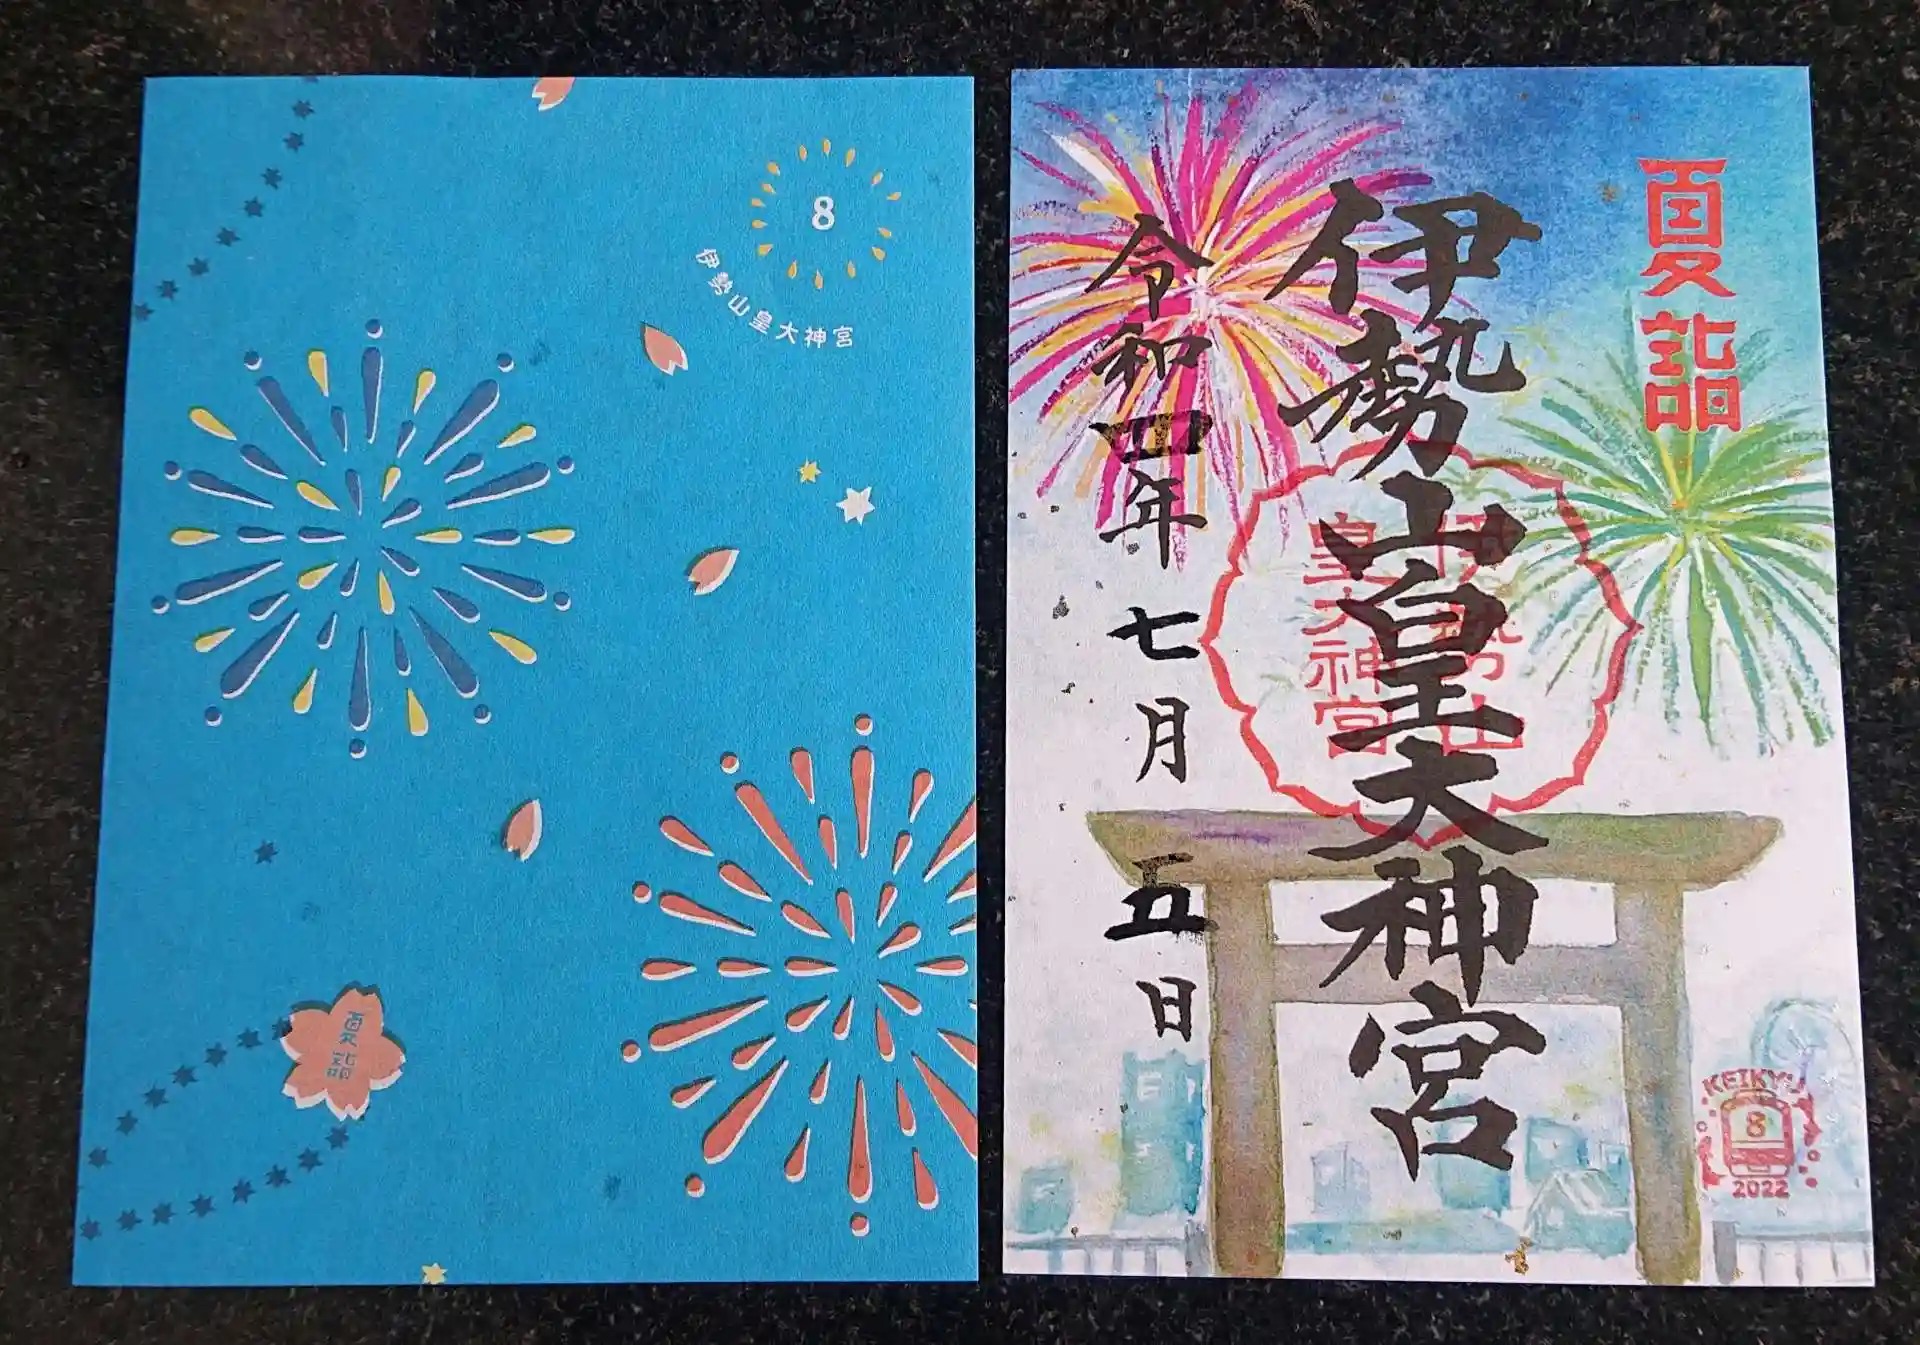 8
伊勢山皇大神宮
夏詣
夏詣
伊勢山皇大神宮
伊勢山
皇大神宮
令和四年七月五日
KEIKYU
8
2022